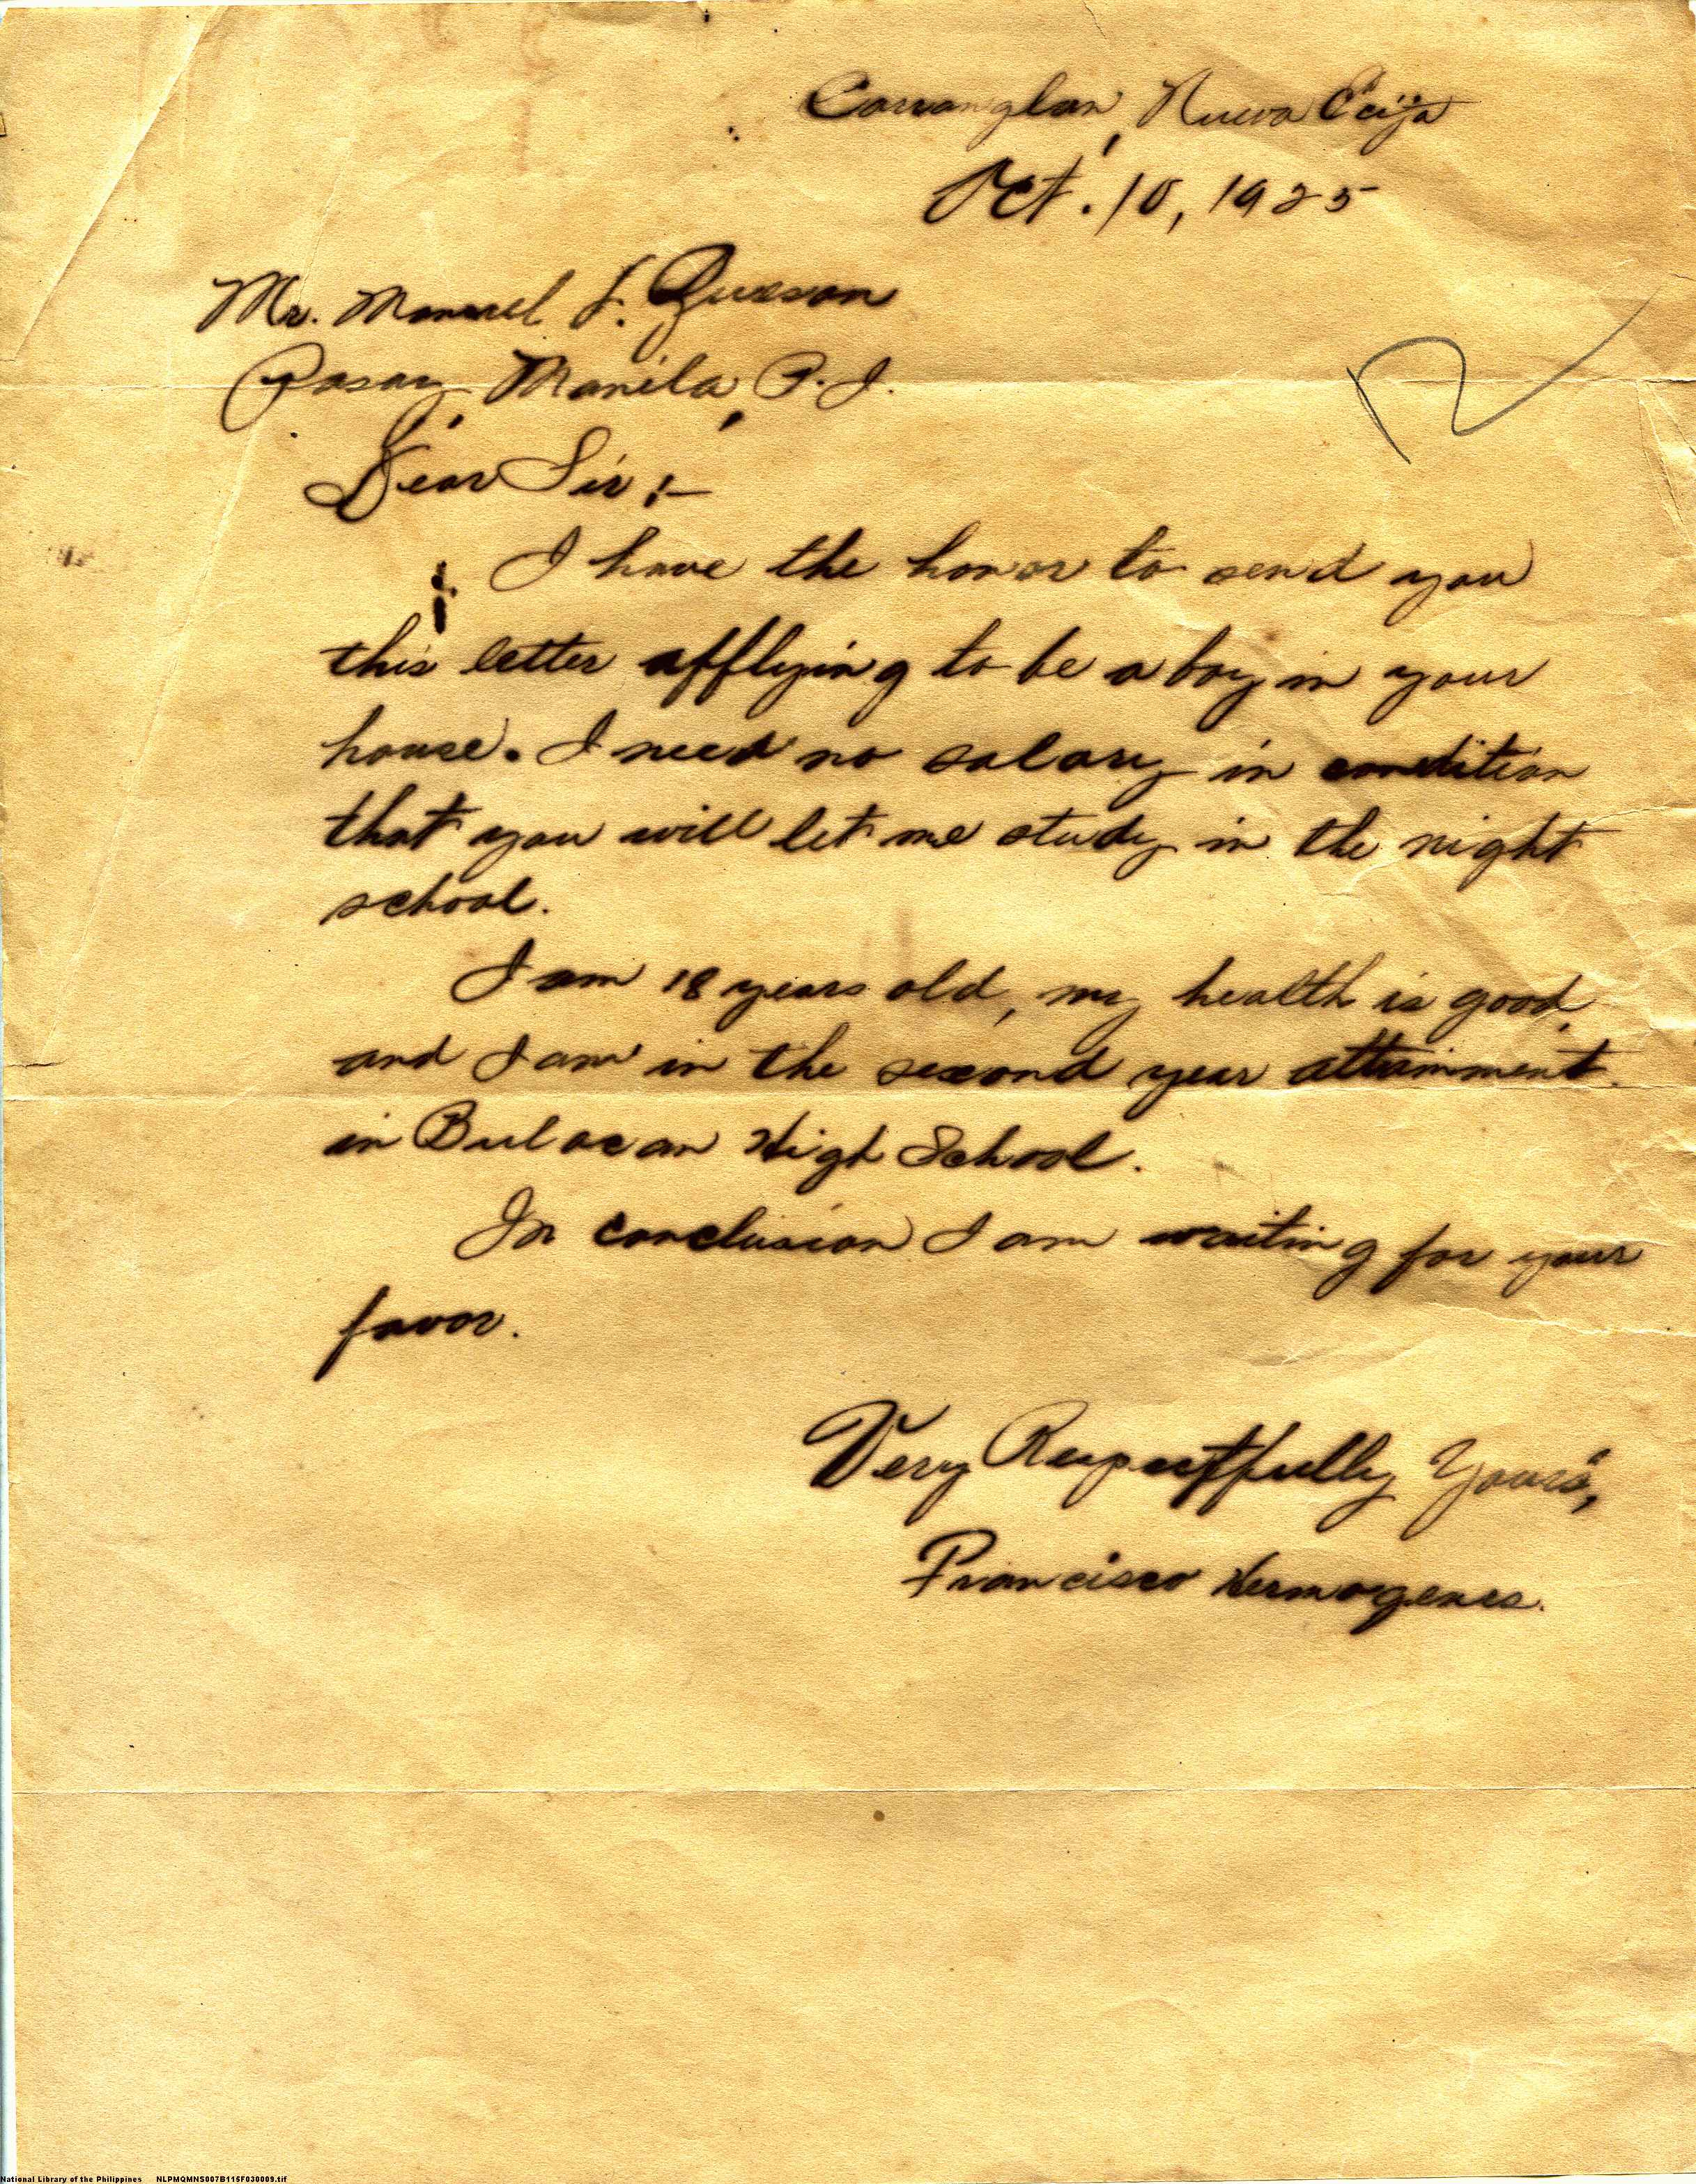 Carranglan, Nueva Ecija
Oct. 10, 1925
Mr. Manuel L. Quezon
Pasay, Manila, P. I.
Dear Sir:-
I have the honor to send you
this letter applying to be a boy in your
house. I need no salary in condition
that you will let me study in the night
school.
I am 18 years old, my health is good,
and I am in the second year attainment
in Bulacan High School.
In conclusion I am waiting for your
favor.
Very Respectfully Yours,
Francisco Hermogenes.
National Library of the Philippines NLPMQMNS007B115F030009.tif